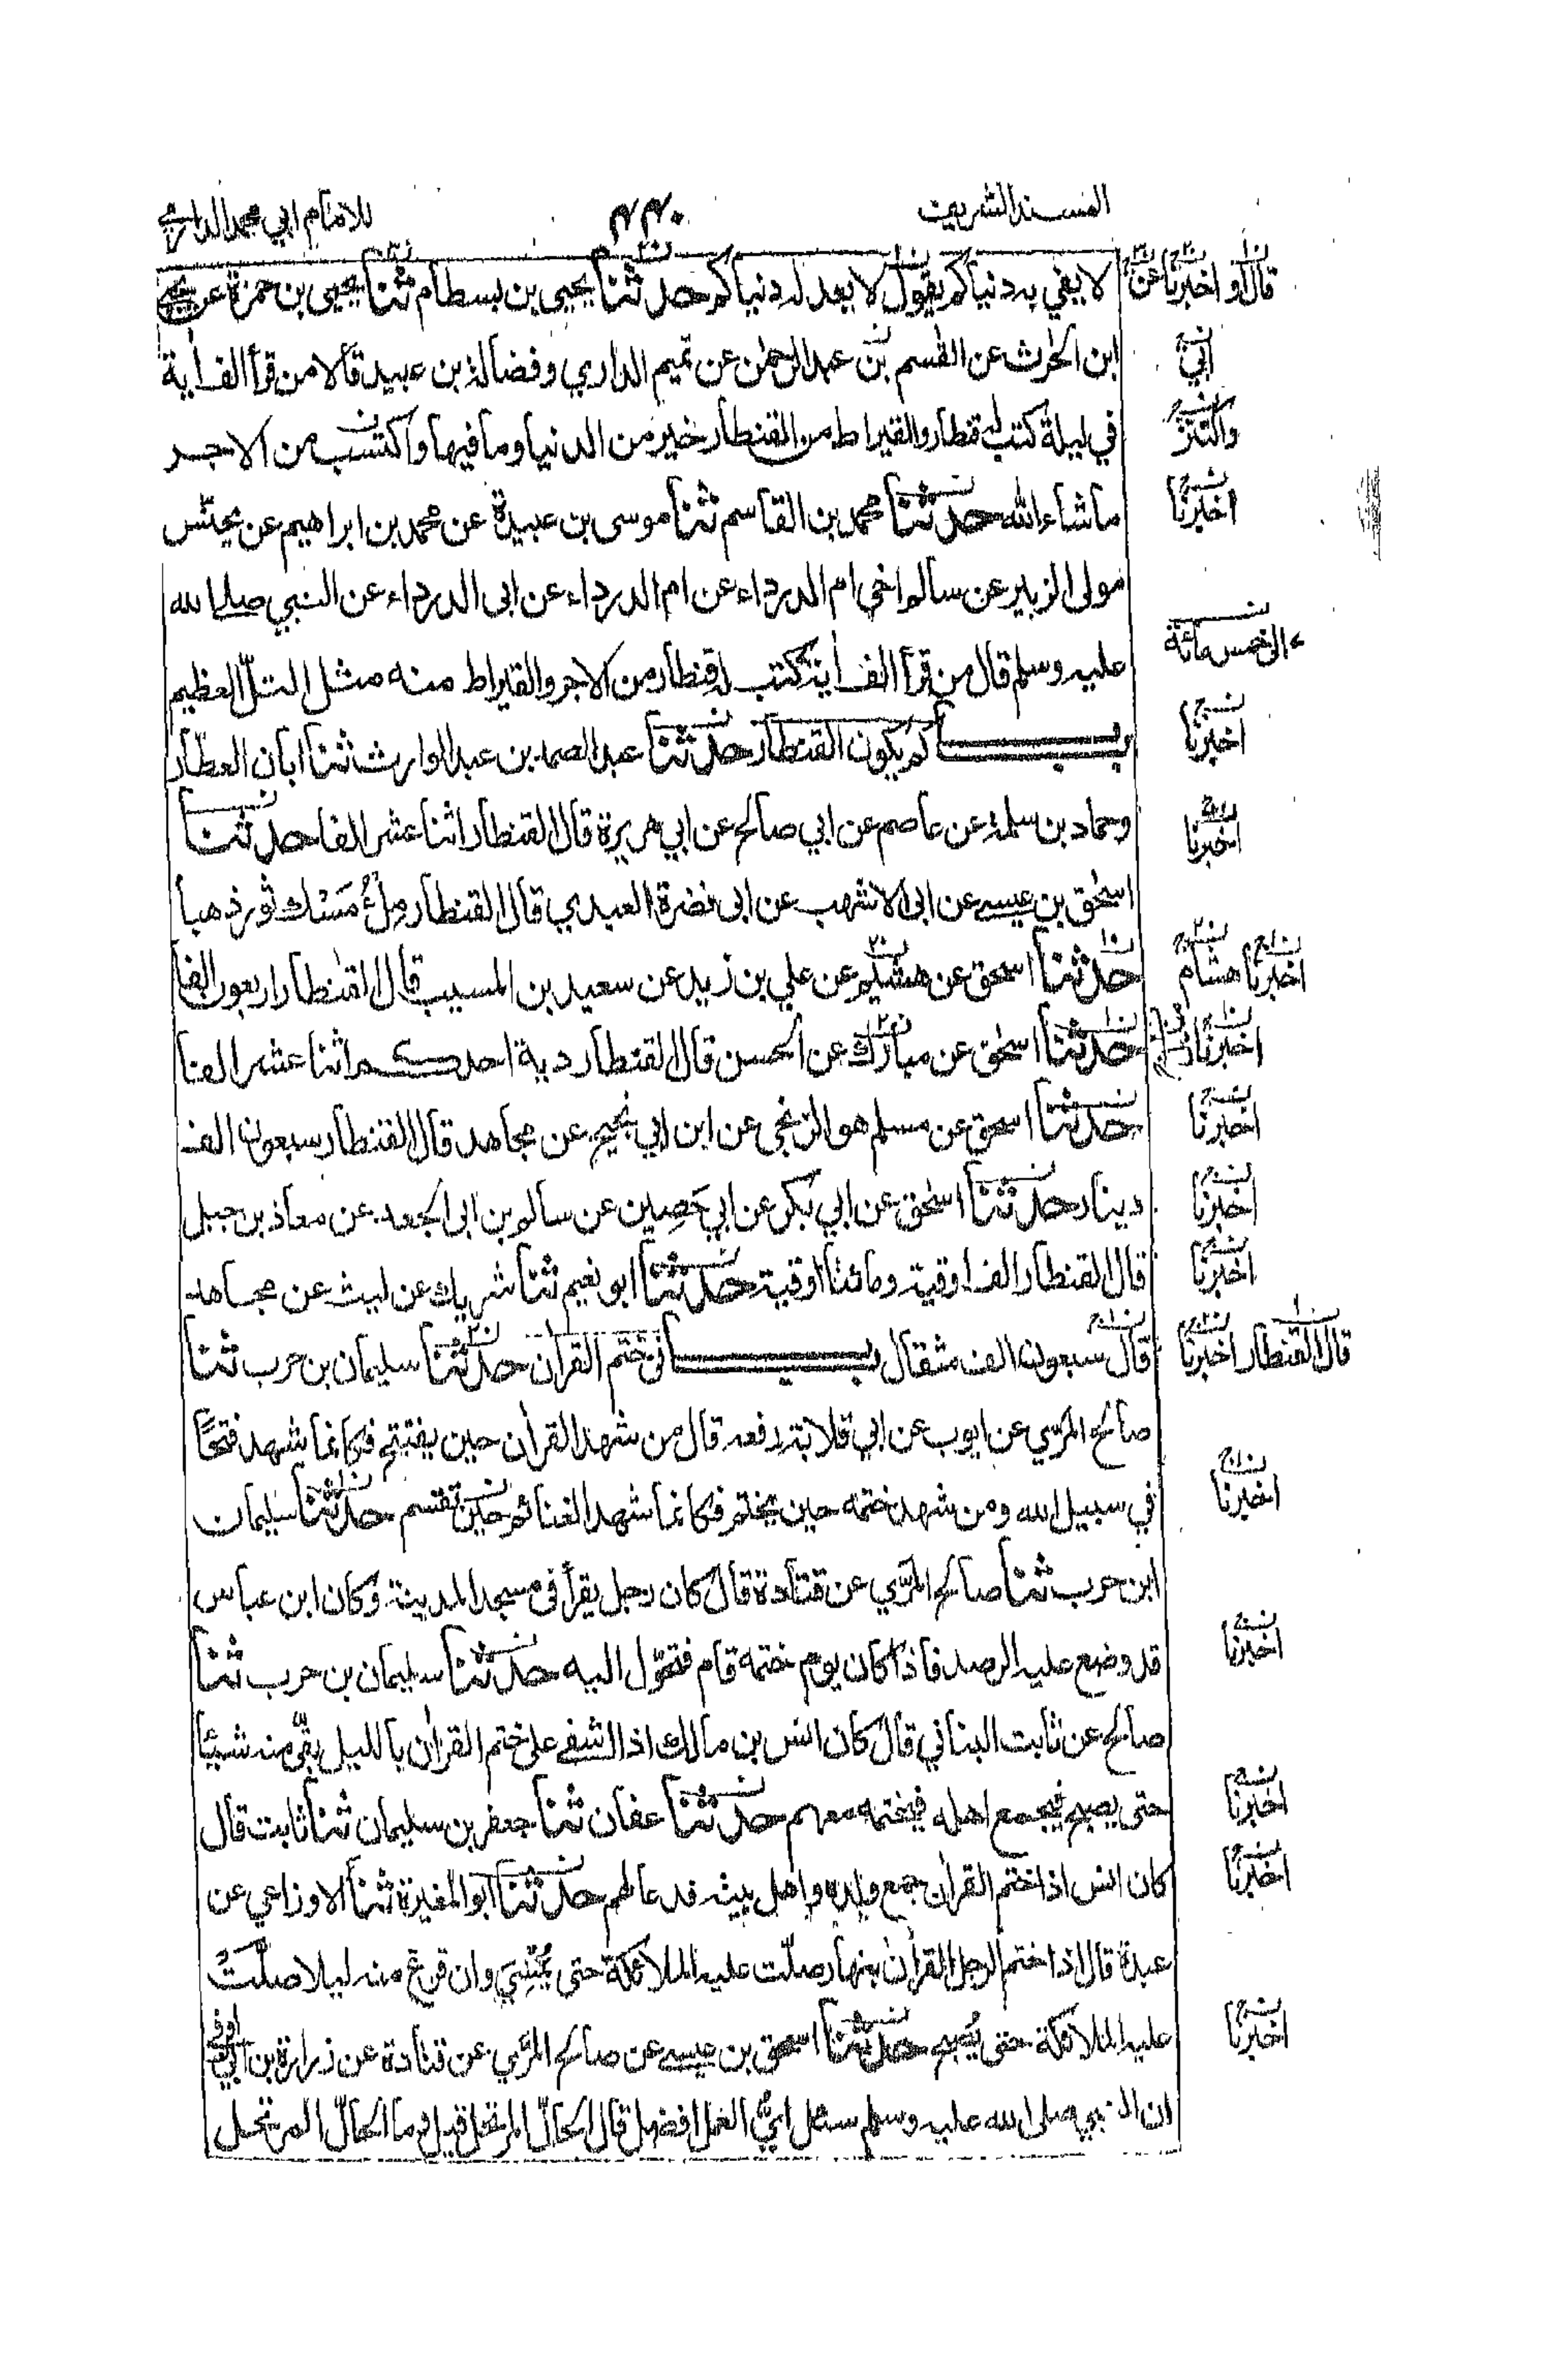 المسند الشريف
۴۴۰
للامام ابي محمد الدارمي
لا يفي به دنياكم يقول لا يعدله دنياكم حدثنا يحيى بن بسطام ثنا يحيى بن حمزة عن يحيى
ابن الحٰرث عن القٰسم بن عبد الرحمٰن عن تميم الداري وفضالة بن عبيد قالا من قرأ الف اٰية
في ليلة كتب له قنطار والقيراط من القنطار خير من الدنيا وما فيها واكتسب من الاجر
ما شاء الله حدثنا محمد بن القاسم ثنا موسى بن عبيدة عن محمد بن ابراهيم عن يحنّس
مولى الزبير عن سالم اخي ام الدرداء عن ام الدرداء عن ابى الدرداء عن النبي صلى الله
عليه وسلم قال من قرأ الف اٰية كتب له قنطار من الاجر والقيراط منه مثل التلّ العظيم
باب كم يكون القنطار حدثنا عبد الصمد بن عبد الوارث ثنا ابان العطّار
وحماد بن سلمة عن عاصم عن ابي صالح عن ابي هريرة قال القنطار اثنا عشر الفا حدثنا
اسحٰق بن عيسى عن ابى الاشهب عن ابى نضرة العبدي قال القنطار مِلْءُ مَسْك ثور ذهبا
حدثنا اسحق عن هشيم عن علي بن زيد عن سعيد بن المسيب قال القنطار اربعون الفا
حدثنا اسحٰق عن مبارك عن الحسن قال القنطار دية احدكم اثنا عشر الفا
حدثنا اسحق عن مسلم هو الزنجى عن ابن ابي نجيح عن مجاهد قال القنطار سبعون الف
دينار حدثنا اسحٰق عن ابي بكر عن ابي حَصِين عن سالم بن ابى الجعد عن معاذ بن جبل
قال القنطار الف اوقية ومائتا اوقية حدثنا ابو نعيم ثنا شريك عن ليث عن مجاهد
قال سبعون الف مثقال باب فى ختم القراٰن حدثنا سليمان بن حرب ثنا
صالح المرّي عن ايوب عن ابي قلابة رفعه قال من شهد القراٰن حين يفتتح فكانما شهد فتحًا
في سبيل الله ومن شهد ختمه حين يختم فكانما شهد الغنائم حين تقتسم حدثنا سليمان
ابن حرب ثنا صالح المرّي عن قتادة قال كان رجل يقرأ فى مسجد المدينة وكان ابن عباس
قد وضع عليه الرصد فاذا كان يوم ختمه قام فتحوّل اليه حدثنا سليمان بن حرب ثنا
صالح عن ثابت البناني قال كان انس بن مالك اذا اشفى على ختم القراٰن بالليل بقّى منه شيئا
حتى يصبح فيجمع اهله فيختمه معهم حدثنا عفان ثنا جعفر بن سليمان ثنا ثابت قال
كان انس اذا ختم القراٰن جمع ولده واهل بيته فدعا لهم حدثنا ابو المغيرة ثنا الاوزاعي عن
عبدة قال اذا ختم الرجل القراٰن بنهار صلّت عليه الملائكة حتى يُمْسِيَ وان فرغ منه ليلا صلّتْ
عليه الملائكة حتى يُصبح حدثنا اسحق بن عيسى عن صالح المرّي عن قتادة عن زرارة بن ابي اوفى
ان النبي صلى الله عليه وسلم سئل ايُّ العمل افضل قال الحالّ المرتحل قيل وما الحالّ المرتحل
قال و اخبرنا عن
ابي
اخبرنا
الى خمس مائة
اخبرنا
اخبرنا
اخبرنا هشام
اخبرنا
اخبرنا
اخبرنا
اخبرنا
قال القنطار اخبرنا
اخبرنا
اخبرنا
اخبرنا
اخبرنا
اخبرنا